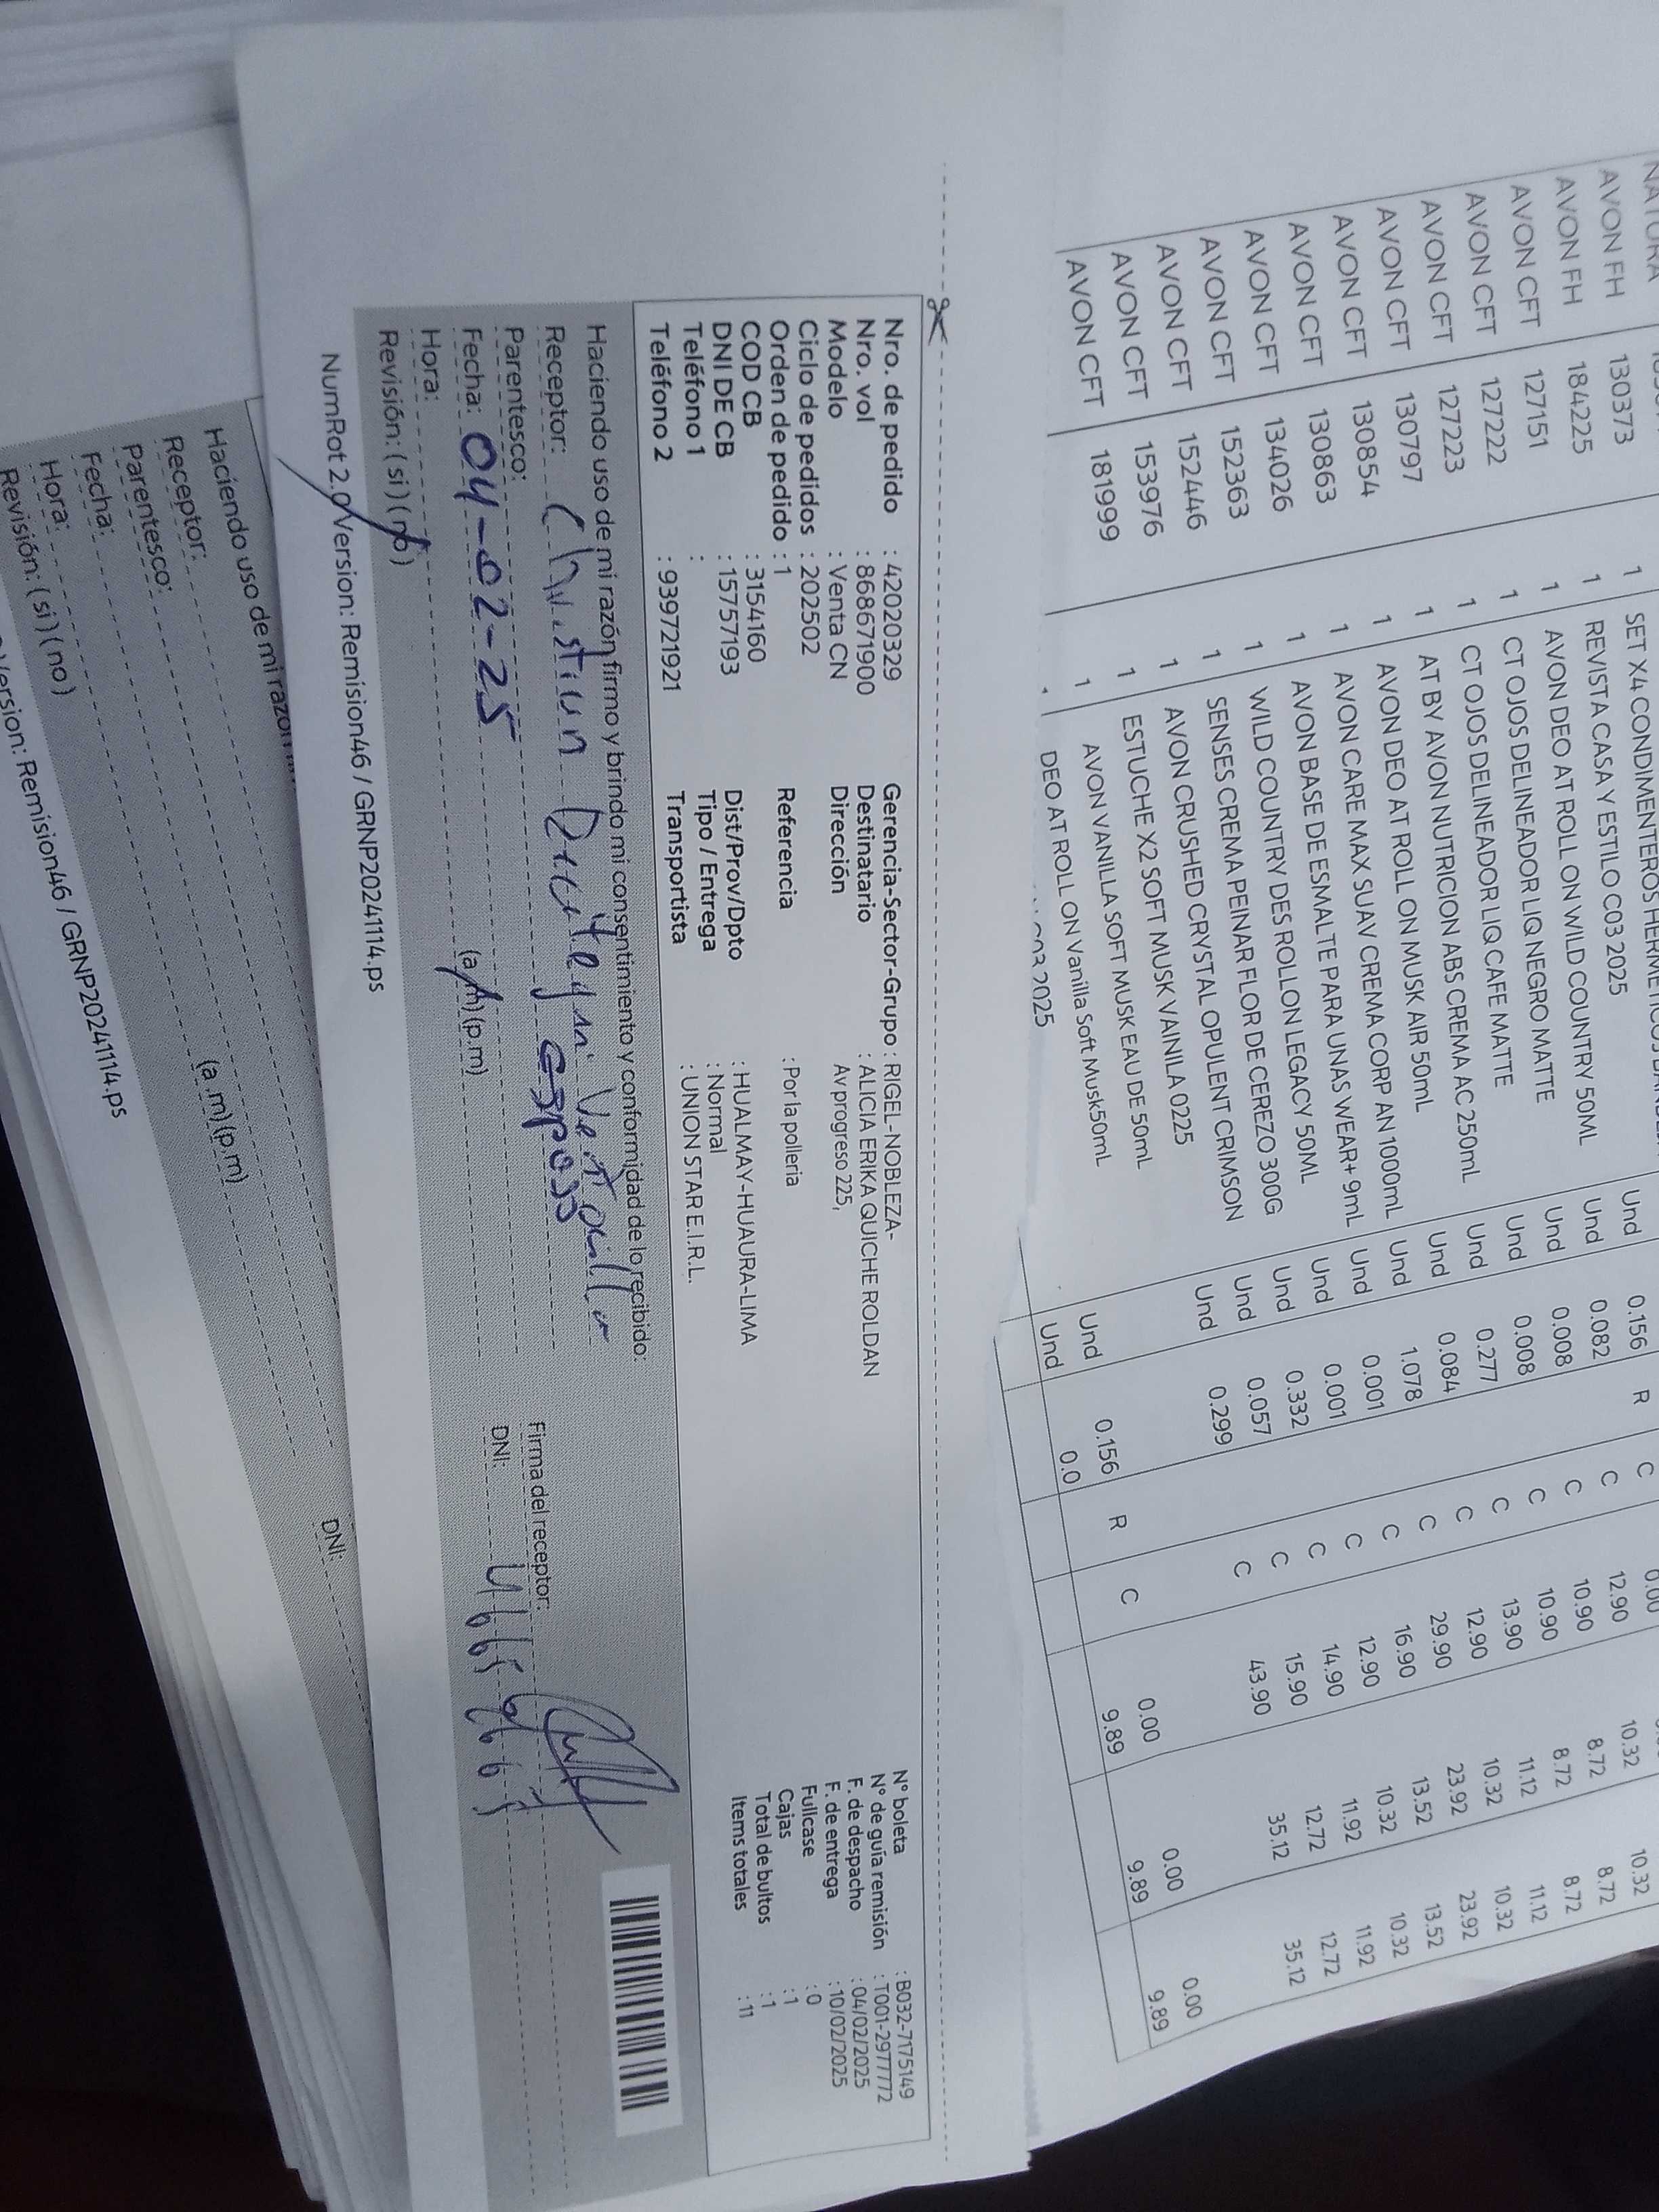 NATURA
AVON FH 130373 1 SET X4 CONDIMENTEROS Und 0.156 R C 0.00
AVON FH 184225 1 REVISTA CASA Y ESTILO C03 2025 Und 0.082 C 12.90 10.32 10.32
AVON CFT 127151 1 AVON DEO AT ROLL ON WILD COUNTRY 50ML Und 0.008 C 10.90 8.72 8.72
AVON CFT 127222 1 CT OJOS DELINEADOR LIQ NEGRO MATTE Und 0.008 C 10.90 8.72 8.72
AVON CFT 127223 1 CT OJOS DELINEADOR LIQ CAFE MATTE Und 0.277 C 13.90 11.12 11.12
AVON CFT 130797 1 AT BY AVON NUTRICION ABS CREMA AC 250mL Und 0.084 C 12.90 10.32 10.32
AVON CFT 130854 1 AVON DEO AT ROLL ON MUSK AIR 50mL Und 1.078 C 29.90 23.92 23.92
AVON CFT 130863 1 AVON CARE MAX SUAV CREMA CORP AN 1000mL Und 0.001 C 16.90 13.52 13.52
AVON CFT 134026 1 AVON BASE DE ESMALTE PARA UNAS WEAR+ 9mL Und 0.001 C 12.90 10.32 10.32
AVON CFT 152363 1 WILD COUNTRY DES ROLLON LEGACY 50ML Und 0.332 C 14.90 11.92 11.92
AVON CFT 152446 1 SENSES CREMA PEINAR FLOR DE CEREZO 300G Und 0.057 C 15.90 12.72 12.72
AVON CFT 153976 1 AVON CRUSHED CRYSTAL OPULENT CRIMSON Und 0.299 C 43.90 35.12 35.12
AVON CFT 181999 1 ESTUCHE X2 SOFT MUSK VAINILA 0225
1 AVON VANILLA SOFT MUSK EAU DE 50mL Und 0.156 R C 0.00 0.00 0.00
DEO AT ROLL ON Vanilla Soft Musk50mL Und 0.0 9.89 9.89 9.89
C03 2025
Nro. de pedido : 42020329 Gerencia-Sector-Grupo : RIGEL-NOBLEZA- N° boleta : B032-7175149
Nro. vol : 868671900 Destinatario : ALICIA ERIKA QUICHE ROLDAN N° de guía remisión : T001-2977772
Modelo : Venta CN Dirección Av progreso 225, F. de despacho : 04/02/2025
Ciclo de pedidos : 202502 F. de entrega : 10/02/2025
Orden de pedido : 1 Referencia : Por la polleria Fullcase : 0
COD CB : 3154160 Cajas : 1
DNI DE CB : 15757193 Dist/Prov/Dpto : HUALMAY-HUAURA-LIMA Total de bultos : 1
Teléfono 1 : Tipo / Entrega : Normal Items totales : 11
Teléfono 2 : 939721921 Transportista : UNION STAR E.I.R.L.
Haciendo uso de mi razón firmo y brindo mi consentimiento y conformidad de lo recibido:
Receptor: Christian
Parentesco: esposo Firma del receptor:
Fecha: 04-02-25 DNI:
Hora: (a.m)(p.m)
Revisión: ( si ) ( no )
NumRot 2.0 Version: Remision46 / GRNP20241114.ps
Haciendo uso de mi razón
Receptor:
Parentesco:
Fecha: DNI:
Hora: (a.m)(p.m)
Revisión: ( si ) ( no )
Version: Remision46 / GRNP20241114.ps